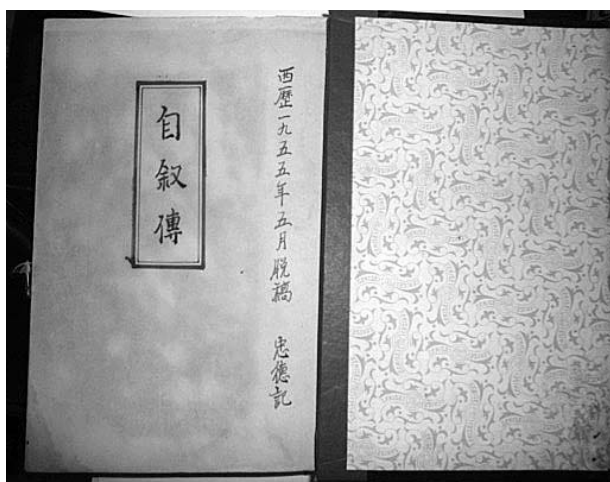 西歷一九五五年五月脫稿 忠德記
自叙傳